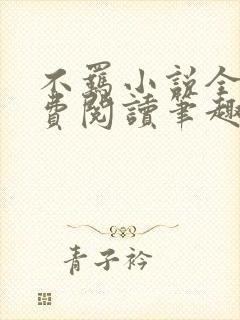 不羁小說全
費閱讀筆趣
青子衿